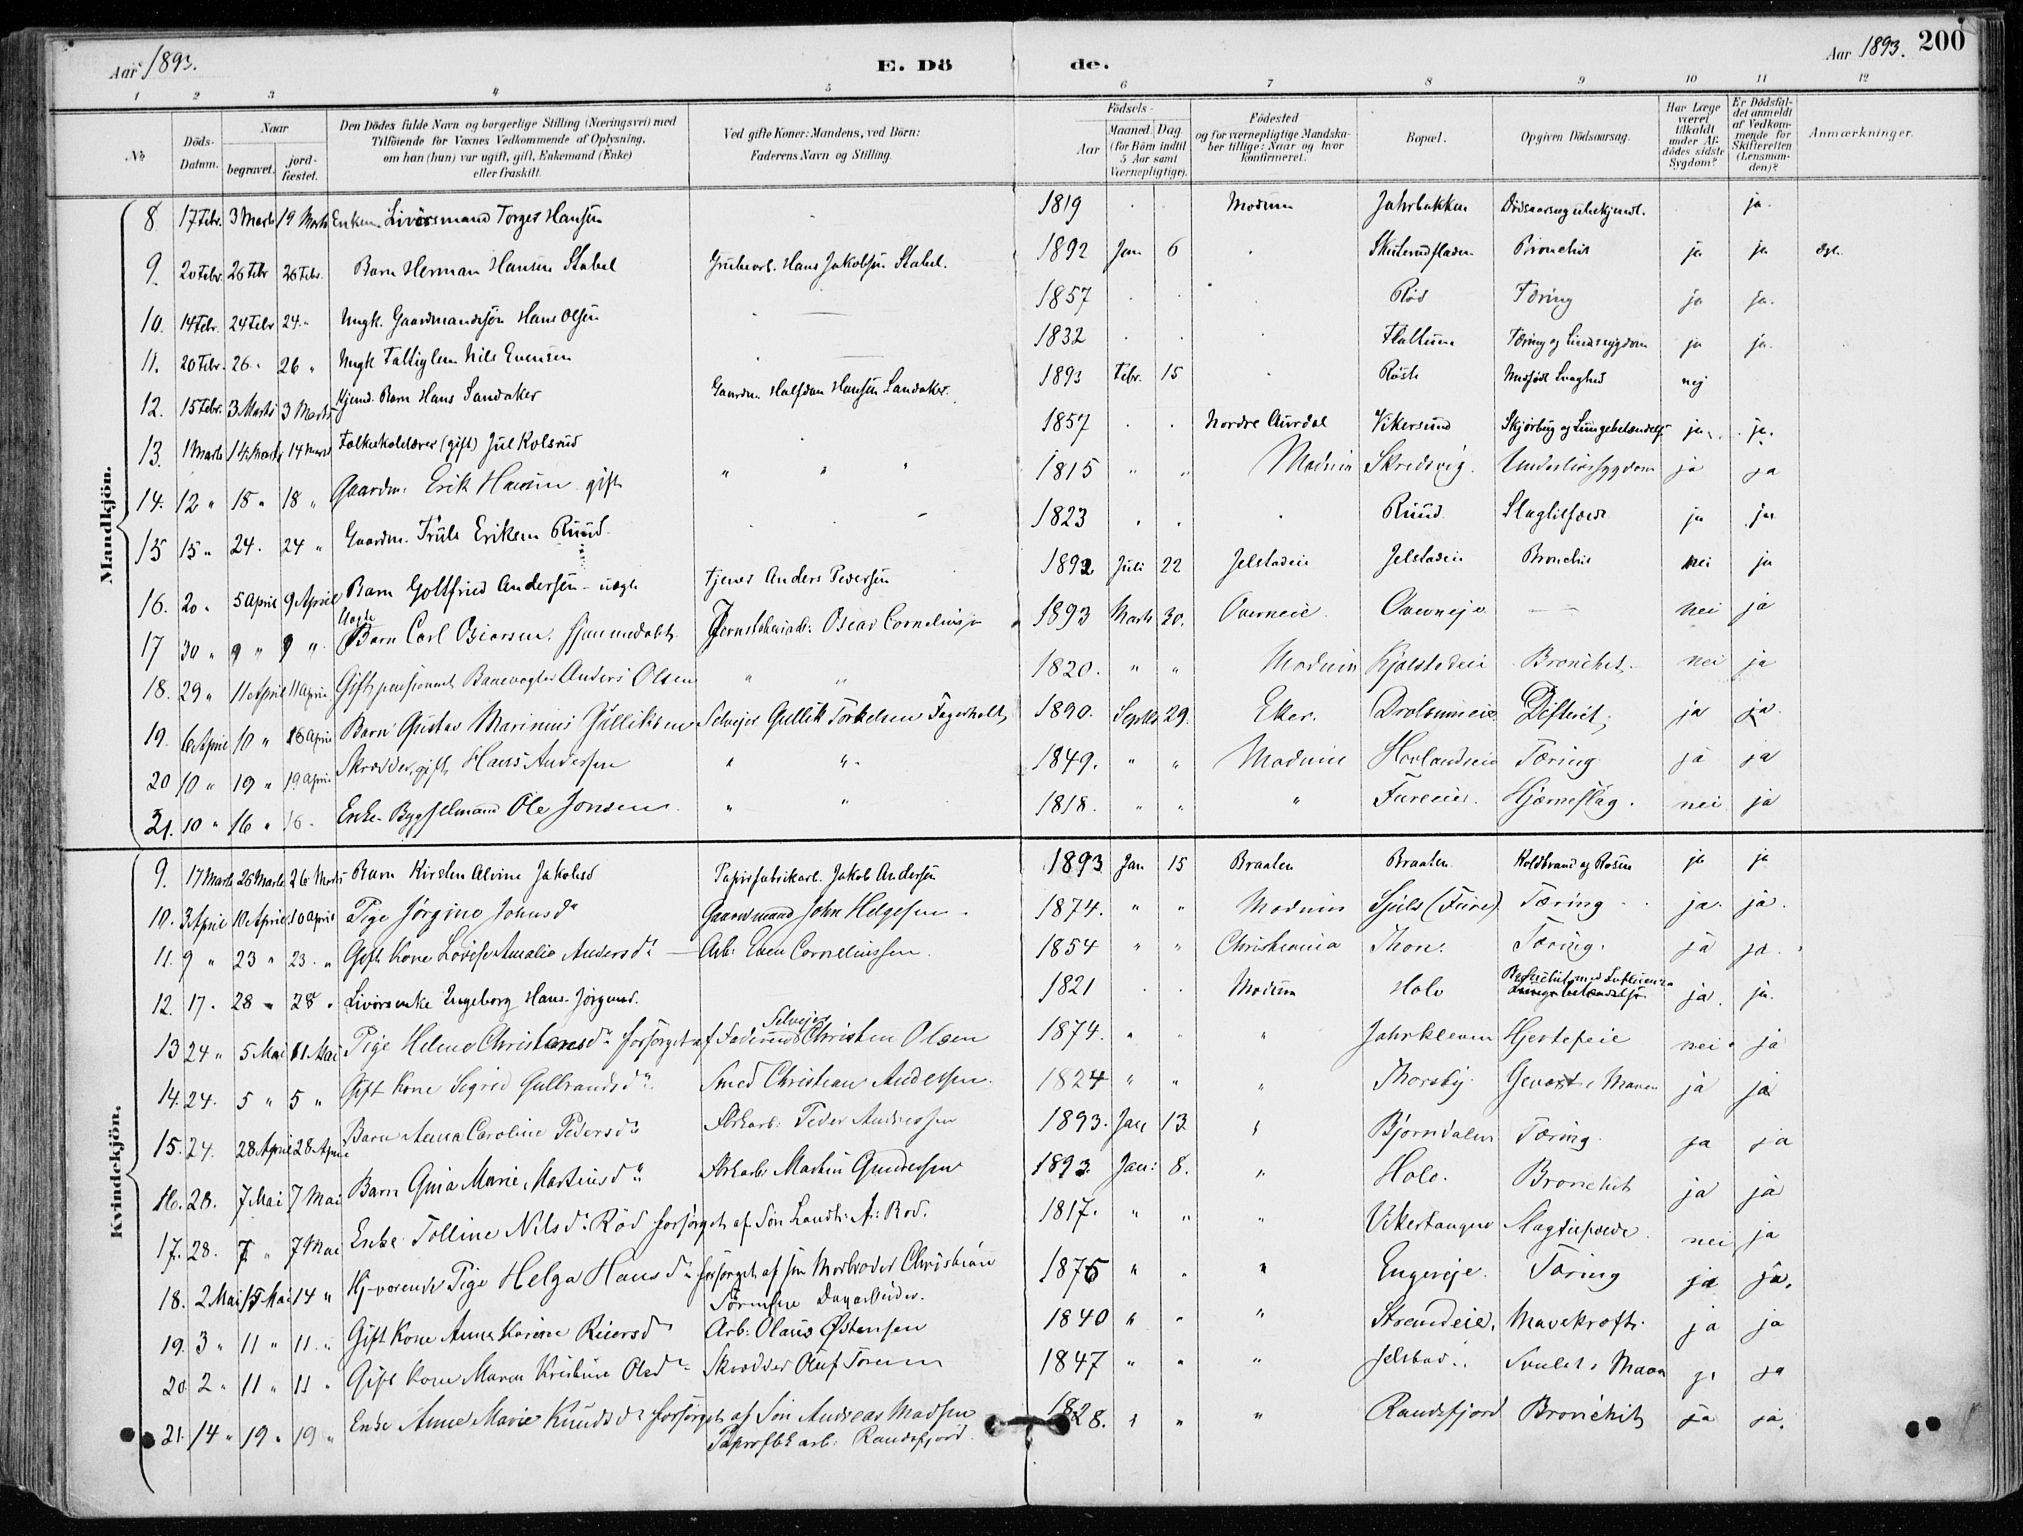 Aar 1893.
E. Döde.
Aar 1893. 200
1 2 3 4 5 6 7 8 9 10 11 12
No
Döds-Datum.
Naar begravet. jordfæstet.
Den Dödes fulde Navn og borgerlige Stilling (Næringsvei) med Tilföiende for Voxnes Vedkommende af Oplysning, om han (hun) var ugift, gift, Enkemand (Enke) eller fraskilt.
Ved gifte Koner: Mandens, ved Börn: Faderens Navn og Stilling.
Födsels- Aar Maaned. Dag (for Börn indtil 5 Aar samt Værnepligtige).
Födested og for værnepligtige Mandskaber tillige: Naar og hvor konfirmeret.
Bopæl.
Opgiven Dödsaarsag.
Har Læge været tilkaldt under Afdödes sidste Sygdom?
Er Dödsfaldet anmeldt af Vedkommende for Skifteretten (Lensmanden)?
Anmærkninger.
Mandkjön.
8. 17 Febr. 3 Marts 19 Marts Enkem. Livörsmand Torger Hansen 1819 Modum Jahrbakken Dödsaarsag ubekjendt. ja.
9. 20 Febr. 26 Febr 26 Febr. Barn Herman Hansen Stabel Grubearb. Hans Jakobsen Stabel. 1892 Jan 6 Skuterudfladen Bronchit ja ja
10. 14 Febr. 24 Febr 24 " Ungk. Gaardmandssön Hans Olsen 1857 Röd Tæring ja ja.
11. 20 Febr. 26 " 26 " Ungk. Fattiglem Nils Evensen 1832 Flattum Tæring og Sindssygdom ja ja.
12. 15 Febr. 3 Marts 3 Marts Hjemd. Barn Hans Sandaker Gaardm. Halfdan Hansen Sandaker. 1893 Febr. 15 Medfödt Svaghed nej
13. 1 Marts 14 Marts 14 Marts Folkeskolelærer (gift) Jul Kolsrud 1857 Nordre Aurdal Vikersund Skjörbug og Lungebetændelse ja. ja.
14. 12 " 18 " 18 " Gaardm. Erik Hansen gift " " " 1815 " " Modum Skredsvig. Underlivssygdom ja ja
15 15 " 24. 24 " Gaardm. Truls Eriksen Ruud. 1823 Ruud Slagtilfælde ja ja.
16. 20 " 5 April 9 April Barn Gottfried Andersen - uægte Tjener Anders Pedersen 1892 Juli 22 Jelstadeie Jelstadeie Bronchit nei ja
17 30 " 9 " 9 " Uægte Barn Carl Oscarsen. hjemmedöbt. Jernstöberiarb: Oscar Corneliusen 1893 Marts 30. Overneie. Overneje — nei ja
18. 29 " 11 April 11 April Gift pensioneret Banevogter Anders Olsen " " 1820. " " Modum Kjölstadeie Bronchit. nei ja
19. 6 April 10 " 18 April Barn Gustav Marinius Gulliksen Selvejer Gullik Torkelsen Fagerholt 1890. Septb. 29. Eker. Drolsumeie Difterit, ja ja.
20 10 " 19 " 19 April Skrædder, gift, Hans Andersen " " 1849. " " Modum Hovlandseie Tæring ja ja
21. 10 " 16 " 16 - Enkem. Bygselmand Ole Jonsen. " " 1818. " " " Fureeie. Hjerneslag. nei ja
Kvindekjön.
9. 17 Marts 26 Marts 26 Marts Barn Kirsten Alvine Jakobsd Papirfabrikarb. Jakob Andersen 1893 Jan 15 Braaten Braaten Koldbrand og Rosen ja ja
10. 3 April 10 April 10 April Pige Jörgine Johnsdr Gaardmand John Helgesen. 1874. " " Modum Sjuls (Fure). Tæring ja. ja.
11. 9 " 23 " 23. " Gift Kone Lovise Amalie Andersdr — Arb: Even Corneliussen. 1854 " " Christiania Thon. Tæring. ja ja.
12. 17. 28 " 28 " Livörsenke Ingeborg Hans-Jörgensd. 1821 Modum Holo Bronchit med Influenza ja. ja.
13 24 " 5 Mai 11 Mai Pige Helene Christensdr forsörget af Faderens Selvejer Christen Olsen 1874. " " Jahrkleven Hjertefeie nei ja
14. 24. 5 " 5 " Gift Kone Sigrid Gulbrandsdr. Smed Christian Andersen. 1824 " " " Thorsby. Gevæxt i Maven ja ja
15. 24. 28 April 28 April Barn Anna Caroline Pedersdr Peder Andreassen 1893. Jan 13. " Björndalen Tæring. ja ja
16. 28. 7 Mai 7 Mai Barn Gina Marie Martinsdr Martin Gundersen 1893. Jan: 8. " Holo. Bronchit ja ja
17. 28. 7 " 7 Mai Enke Tolline Nilsdr Röd forsörget af Sön Landh: A: Röd. 1817. " " " Vikertangen Slagtilfælde. nei ja
18. 2 Mai 15 Mai 14 " Hj-værende Pige Helga Hansdr forsörget af sin Morbroder Christian Sörensen Dagarbeider. 1876 " " " Engereje. Tæring ja ja.
19. 3 " 11 " 11 " Gift Kone Anne Karine Reiersdr Arb: Olaus Østensen 1840 " " " Strandeie. Mavekræft. ja ja
20. 2 " 11 " 11 " Gift Kone Maren Kristine Olsdr Skrædder Oluf Toresen 1847 " " " Jelstad.. Svulst i Maven ja ja
21. 14 " 19 " 19 " Enke Anne Marie Knudsdr forsörget af Sön Andreas Madsen Papirfbkarb: Randsfjord. 1828. " " " Randsfjord Bronchit ja ja.